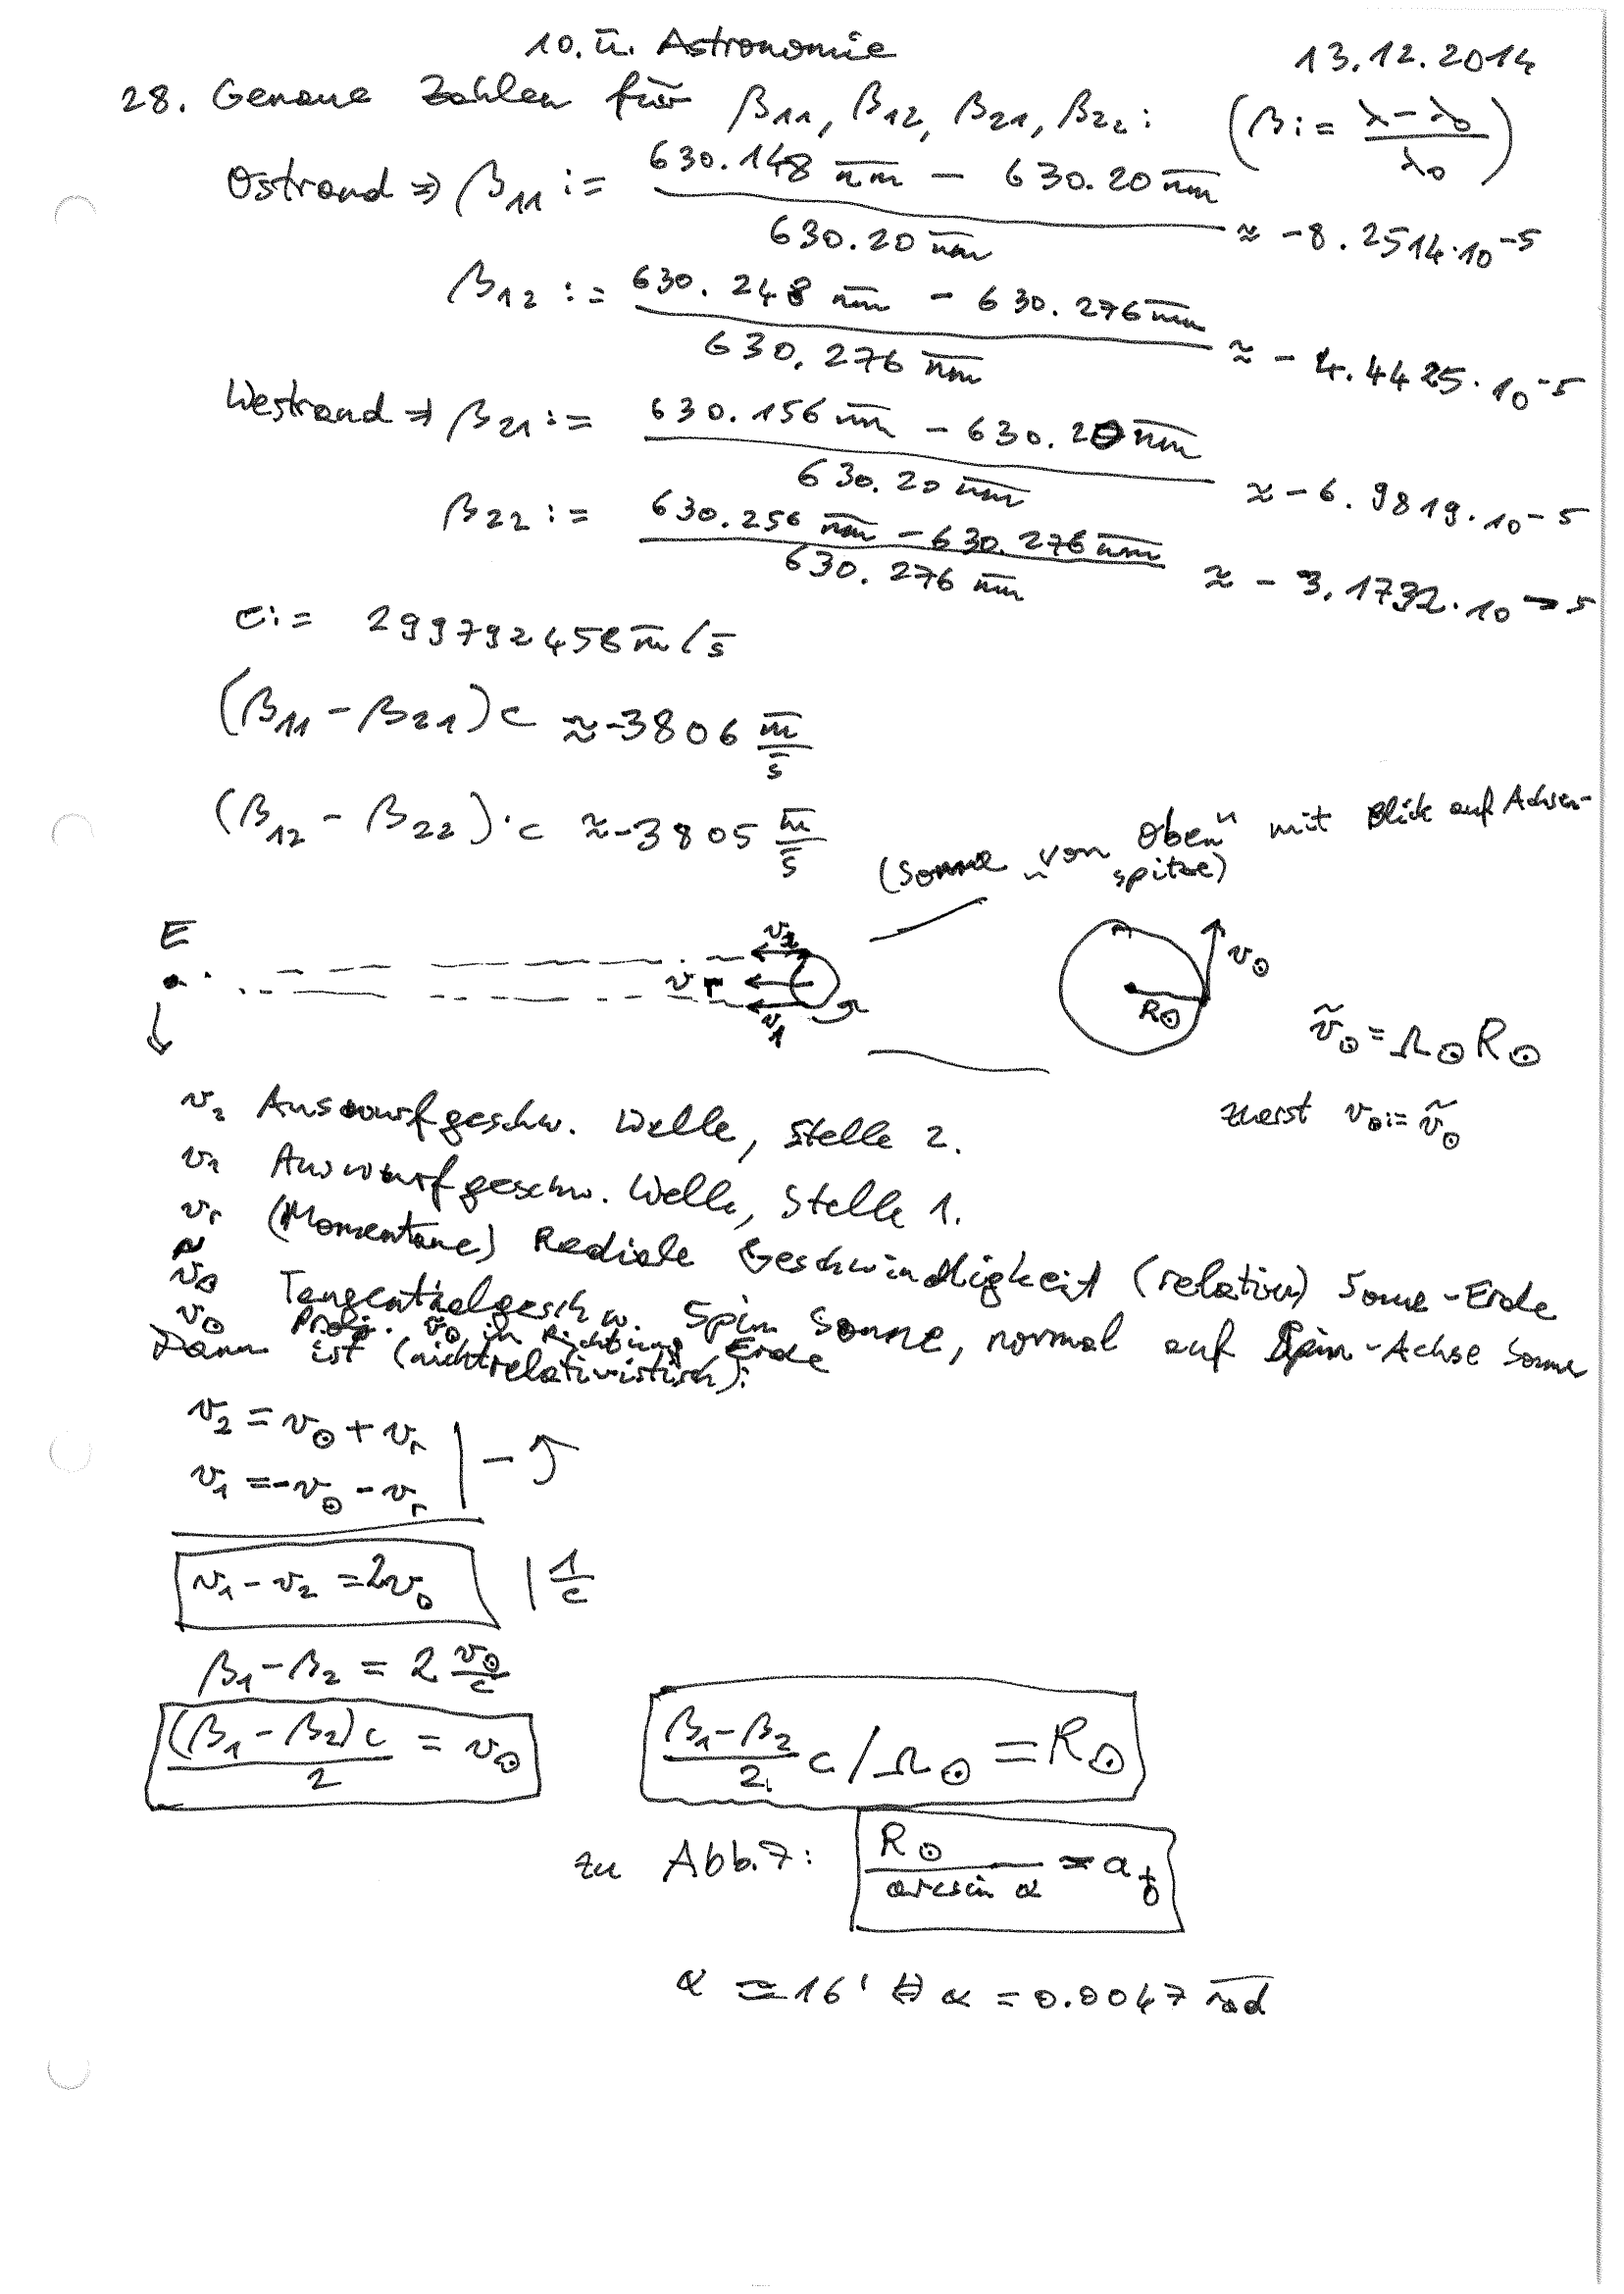 10. Ü. Astronomie
13.12.2014
28. Genaue Zahlen für β11, β12, β21, β22: (β := (λ-λ0)/λ0)
Ostrand ⇒ β11 := (630.148 nm - 630.20 nm)/(630.20 nm) ≈ -8.2514·10^-5
β12 := (630.248 nm - 630.276 nm)/(630.276 nm) ≈ -4.4425·10^-5
Westrand ⇒ β21 := (630.156 nm - 630.20 nm)/(630.20 nm) ≈ -6.9819·10^-5
β22 := (630.256 nm - 630.276 nm)/(630.276 nm) ≈ -3.1732·10^-5
c := 299792458 m/s
(β11 - β21)c ≈ -3806 m/s
(β12 - β22)·c ≈ -3805 m/s
(Sonne "von Oben" mit Blick auf Achsen-
spitze)
E
v2
vr
v1
v⊙
R⊙
ṽ⊙ = Ω⊙ R⊙
zuerst v⊙ := ṽ⊙
v2 Auswurfgeschw. Welle, Stelle 2.
v1 Auswurfgeschw. Welle, Stelle 1.
vr (Momentane) Radiale Geschwindigkeit (relativ) Sonne-Erde
ṽ⊙ Tangentialgeschw. Spin Sonne, normal auf Spin-Achse Sonne
v⊙ Proj. ṽ⊙ in Richtung Erde
Dann ist (nichtrelativistisch):
v2 = v⊙ + vr
v1 = -v⊙ - vr
v1 - v2 = 2v⊙ | 1/c
β1 - β2 = 2 v⊙/c
(β1 - β2)c/2 = v⊙
(β1-β2)/2 c / Ω⊙ = R⊙
zu Abb.7: R⊙/(arcsin α) = a♁
α ≃ 16' ⇔ α = 0.0047 rad